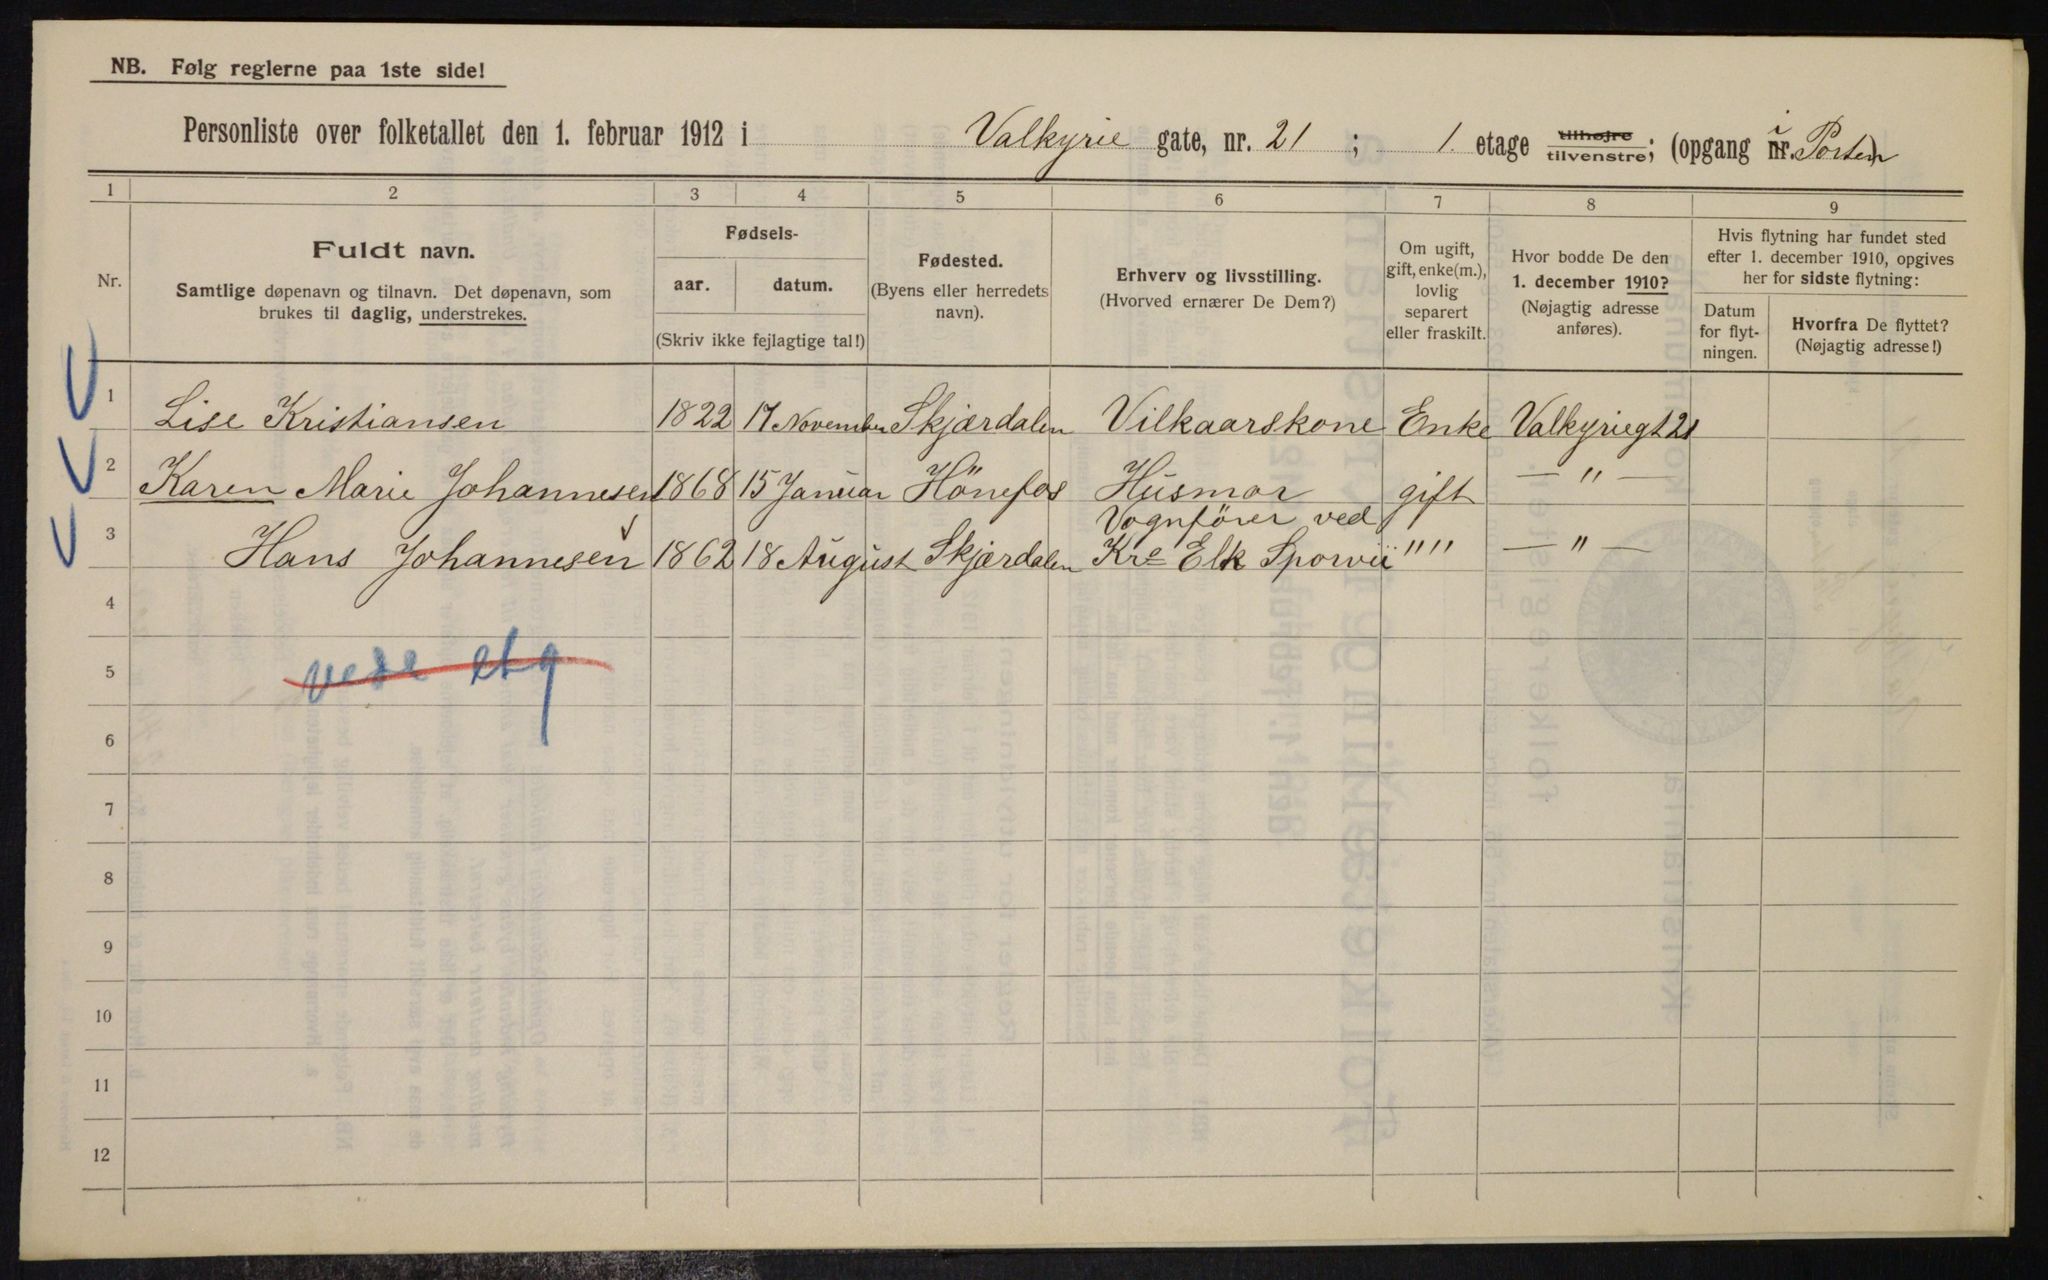 NB. Følg reglerne paa 1ste side!
Personliste over folketallet den 1. februar 1912 i Valkyrie gate, nr. 21 ; 1. etage tilhøjre tilvenstre; (opgang nr. i Porten)
1 2 3 4 5 6 7 8 9
Nr.
Fuldt navn.
Samtlige døpenavn og tilnavn. Det døpenavn, som
brukes til daglig, understrekes.
Fødsels-
aar. datum.
(Skriv ikke fejlagtige tal!)
Fødested.
(Byens eller herredets
navn).
Erhverv og livsstilling.
(Hvorved ernærer De Dem?)
Om ugift,
gift, enke(m.),
lovlig
separert
eller fraskilt.
Hvor bodde De den
1. december 1910?
(Nøjagtig adresse
anføres).
Hvis flytning har fundet sted
efter 1. december 1910, opgives
her for sidste flytning:
Datum
for flyt-
ningen.
Hvorfra De flyttet?
(Nøjagtig adresse!)
1 Lise Kristiansen 1822 17 November Skjærdalen Vilkaarskone Enke Valkyriegt 21
2 Karen Marie Johannesen 1868 15 Januar Hönefos Husmor gift — " —
3 Hans Johannesen 1862 18 August Skjærdalen Vognförer ved
Kra Elk Sporvei " " — " —
4
5
6
7
8
9
10
11
12